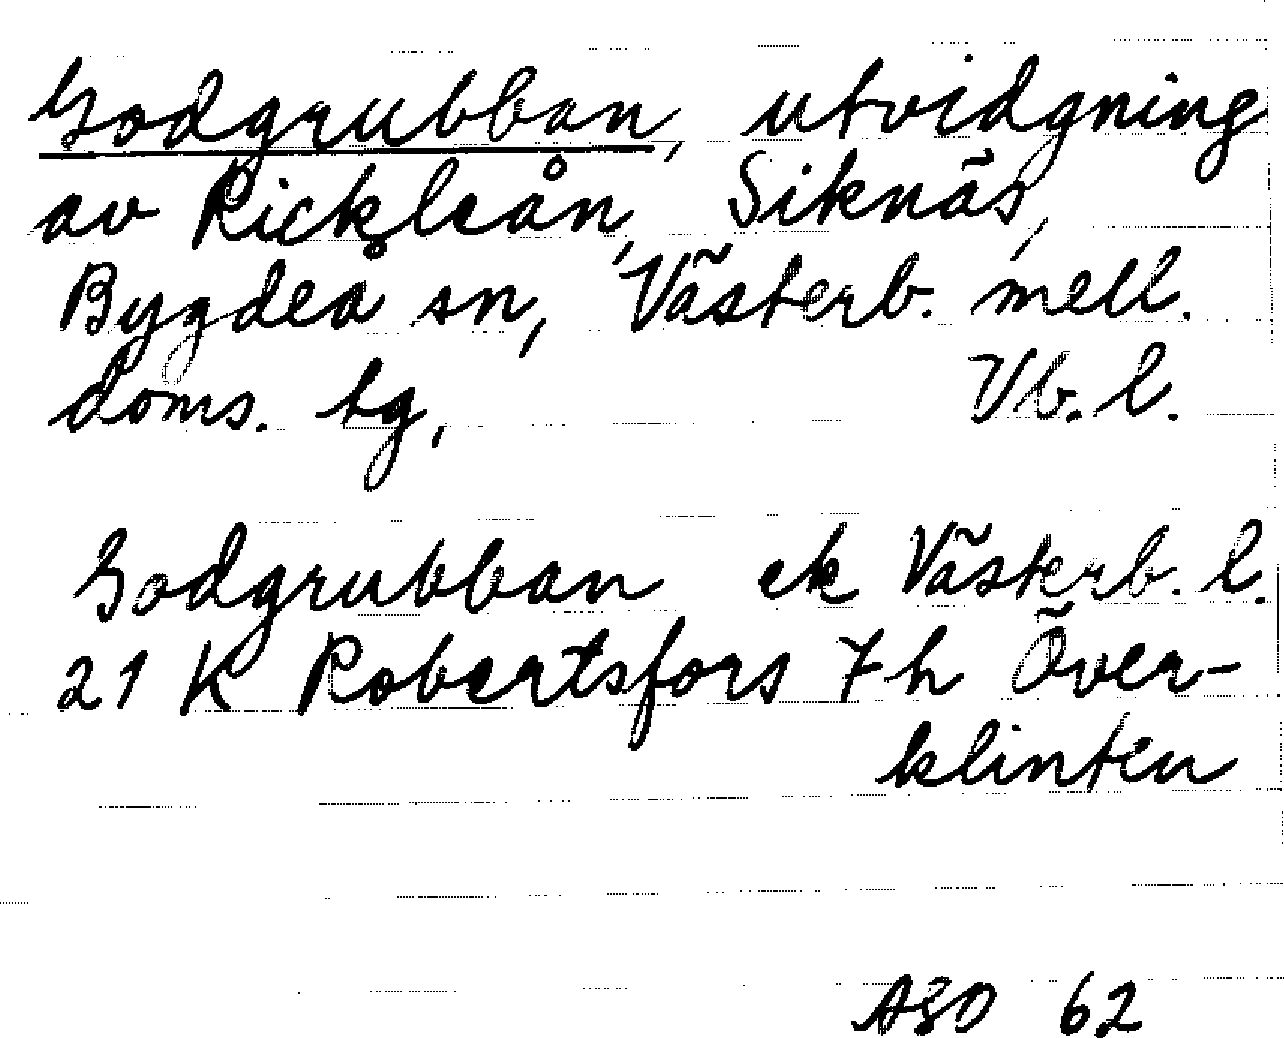 Godgrubban, utvidgning
av Rickleån, Siknäs,
Bygdeå sn, Västerb. mell.
doms. tg, Vb. l.
Godgrubban ek Västerb. l.
21 K Robertsfors 7 h Över-
klinten
ASO 62